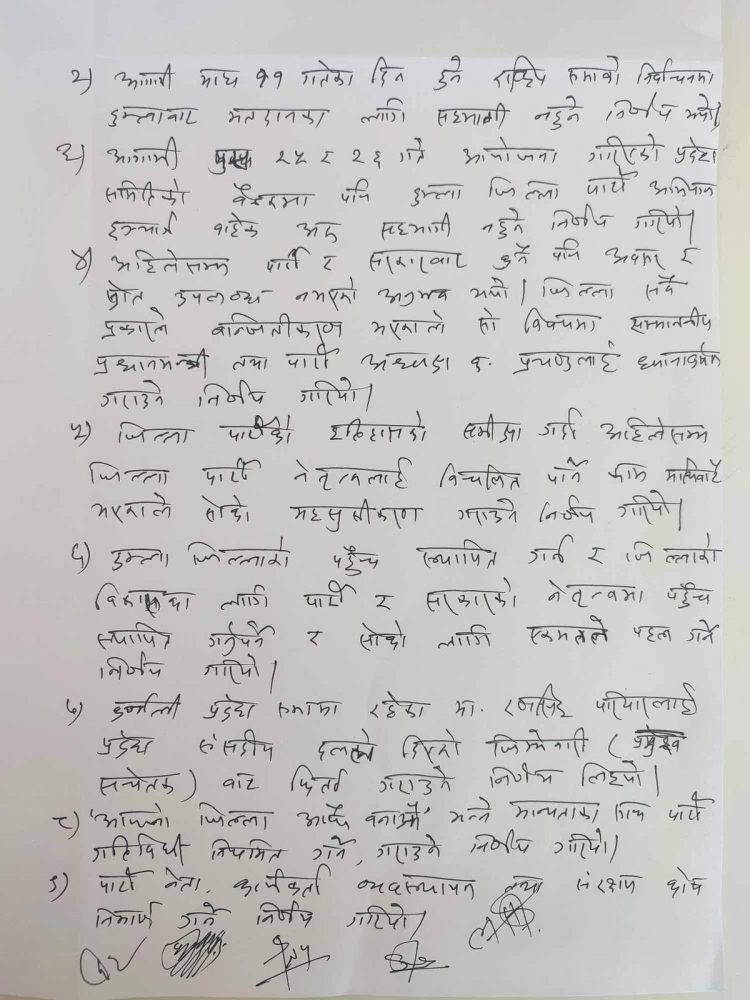 २) आगामी माघ ११ गतेका दिन हुने राष्ट्रिय सभाको निर्वाचनमा
हुम्लाबाट मतदानका लागि सहभागी नहुने निर्णय भयो।
३) आगामी २५ र २६ गते आयोजना गरिएको प्रदेश
समितिको बैठकमा पनि हुम्ला जिल्ला पार्टी अभियान
इन्चार्ज बाहेक अरु सहभागी नहुने निर्णय गरियो।
४) अहिलेसम्म पार्टी र सरकारबाट कुनै पनि अवसर र
स्रोत उपलब्ध नभएको अनुभव भयो। जिल्ला सबै
प्रकारले बन्जितीकरण भएकाले सो विषयमा सम्माननीय
प्रधानमन्त्री तथा पार्टी अध्यक्ष क. प्रचण्डलाई ध्यानाकर्षण
गराउने निर्णय गरियो।
५) जिल्ला पार्टीको इतिहासको समीक्षा गर्दा अहिलेसम्म
जिल्ला पार्टी नेतृत्वलाई विचलित पार्ने काम माथिबाटै
भएकाले सोको महसुसीकरण गराउने निर्णय गरियो।
६) हुम्ला जिल्लाको पहुँच स्थापित गर्न र जिल्लाको
विकासका लागि पार्टी र सरकारको नेतृत्वमा पहुँच
स्थापित गर्नुपर्ने र सोको लागि एकमतले पहल गर्ने
निर्णय गरियो।
७) कर्णाली प्रदेश सभामा रहेका मा. रणसिंह परियारलाई
प्रदेश संसदीय दलले दिएको जिम्मेवारी (प्रमुख
सचेतक) बाट फिर्ता गराउने निर्णय लिइयो।
८) 'आफ्नो जिल्ला आफै बनाऔं' भन्ने मान्यताका साथ पार्टी
गतिविधी नियमित गर्ने, गराउने निर्णय गरियो।
९) पार्टी नेता, कार्यकर्ता व्यवस्थापन तथा संरक्षण कोष
निर्माण गर्ने निर्णय गरियो।